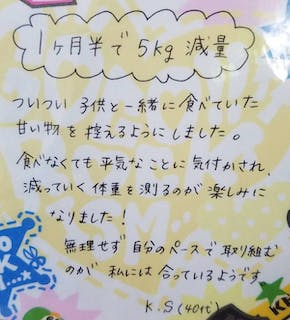 1ヶ月半で5kg減量
ついつい子供と一緒に食べていた
甘い物を控えるようにしました。
食べなくても平気なことに気付かされ、
減っていく体重を測るのが楽しみに
なりました!
無理せず自分のペースで取り組む
のが私には合っているようです
K.S(40代)